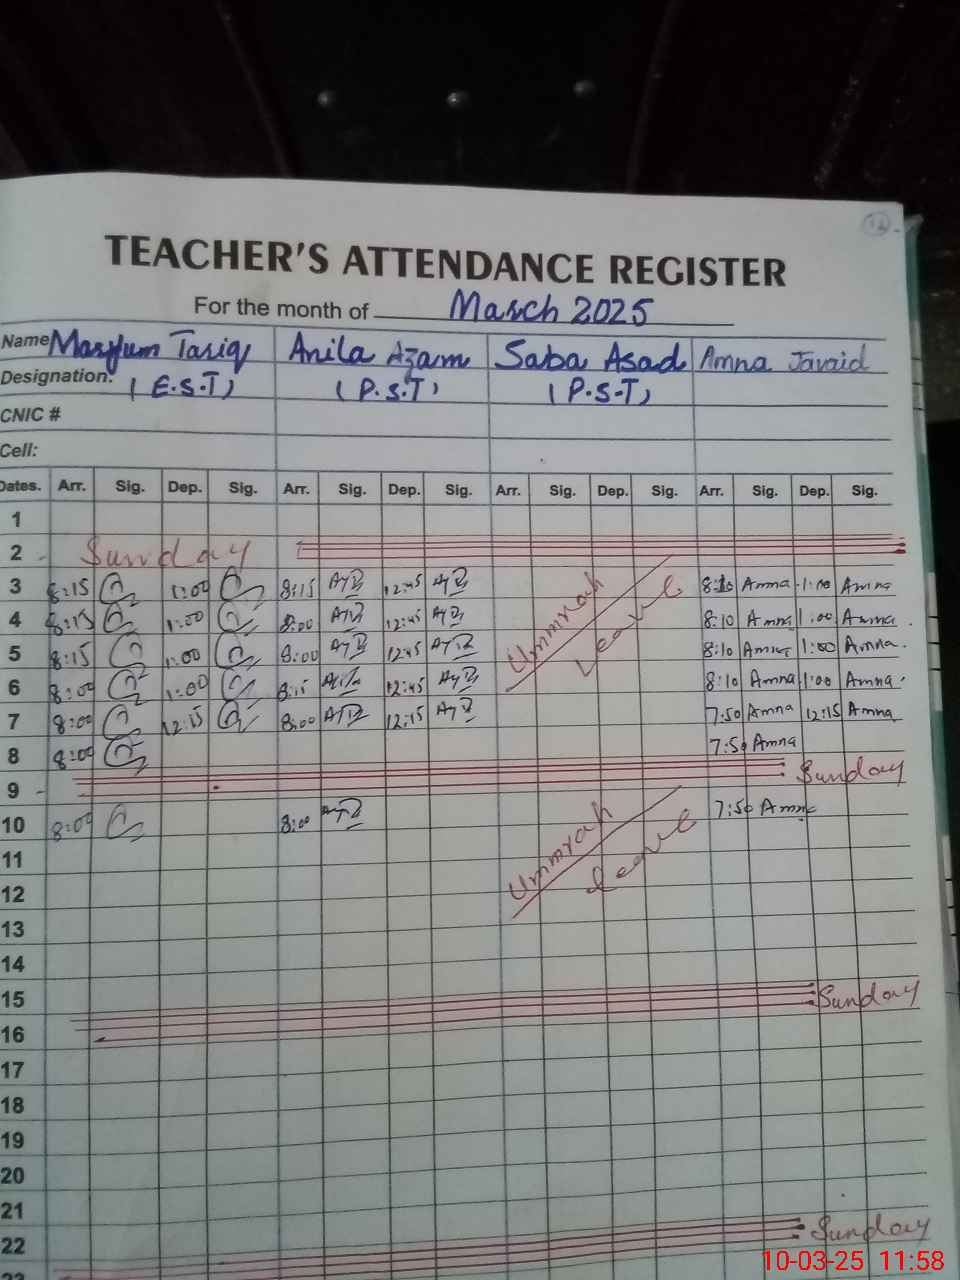 12
TEACHER'S ATTENDANCE REGISTER
For the month of March 2025
Name Maryum Tariq Anila Azam Saba Asad Amna Javaid
Designation: (E.S.T) (P.S.T) (P.S.T)
CNIC #
Cell:
Dates. Arr. Sig. Dep. Sig. Arr. Sig. Dep. Sig. Arr. Sig. Dep. Sig. Arr. Sig. Dep. Sig.
1
2 Sunday
3 8:15 1:00 8:15 12:45 8:10 Amna 1:00 Amna
4 8:15 1:00 8:00 12:45 8:10 Amna 1:00 Amna
5 8:15 1:00 8:00 12:45 Ummrah Leave 8:10 Amna 1:00 Amna
6 8:00 1:00 8:15 12:45 8:10 Amna 1:00 Amna
7 8:00 12:15 8:00 12:15 7:50 Amna 12:15 Amna
8 8:00 7:50 Amna
9 Sunday
10 8:00 8:00 7:50 Amna
11
12 Ummrah leave
13
14
15 Sunday
16
17
18
19
20
21
22 Sunday
23
10-03-25 11:58